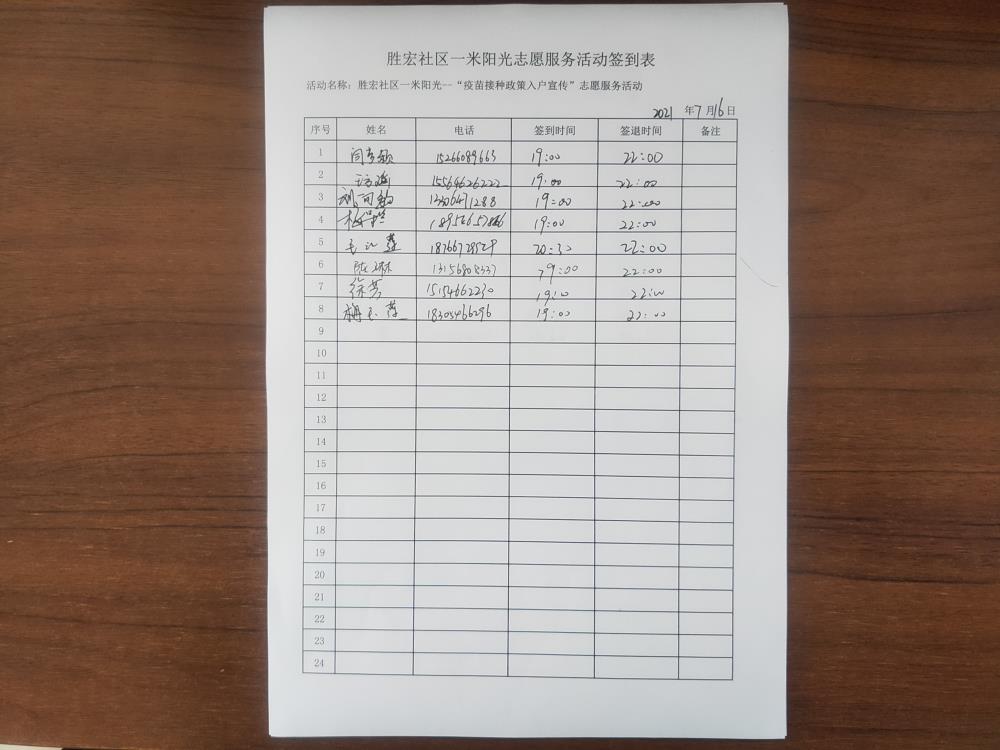 胜宏社区一米阳光志愿服务活动签到表
活动名称：胜宏社区一米阳光--“疫苗接种政策入户宣传”志愿服务活动
2021 年7月16日
序号 姓名 电话 签到时间 签退时间 备注
1 15266089663 19:00 22:00
2 15564626222 19:00 22:00
3 19:00 22:00
4 19:00 22:00
5 20:30 22:00
6 陈琳 13156808337 19:00 22:00
7 徐芳 15154662230 22:00
8 18305466296 19:00 22:00
9
10
11
12
13
14
15
16
17
18
19
20
21
22
23
24